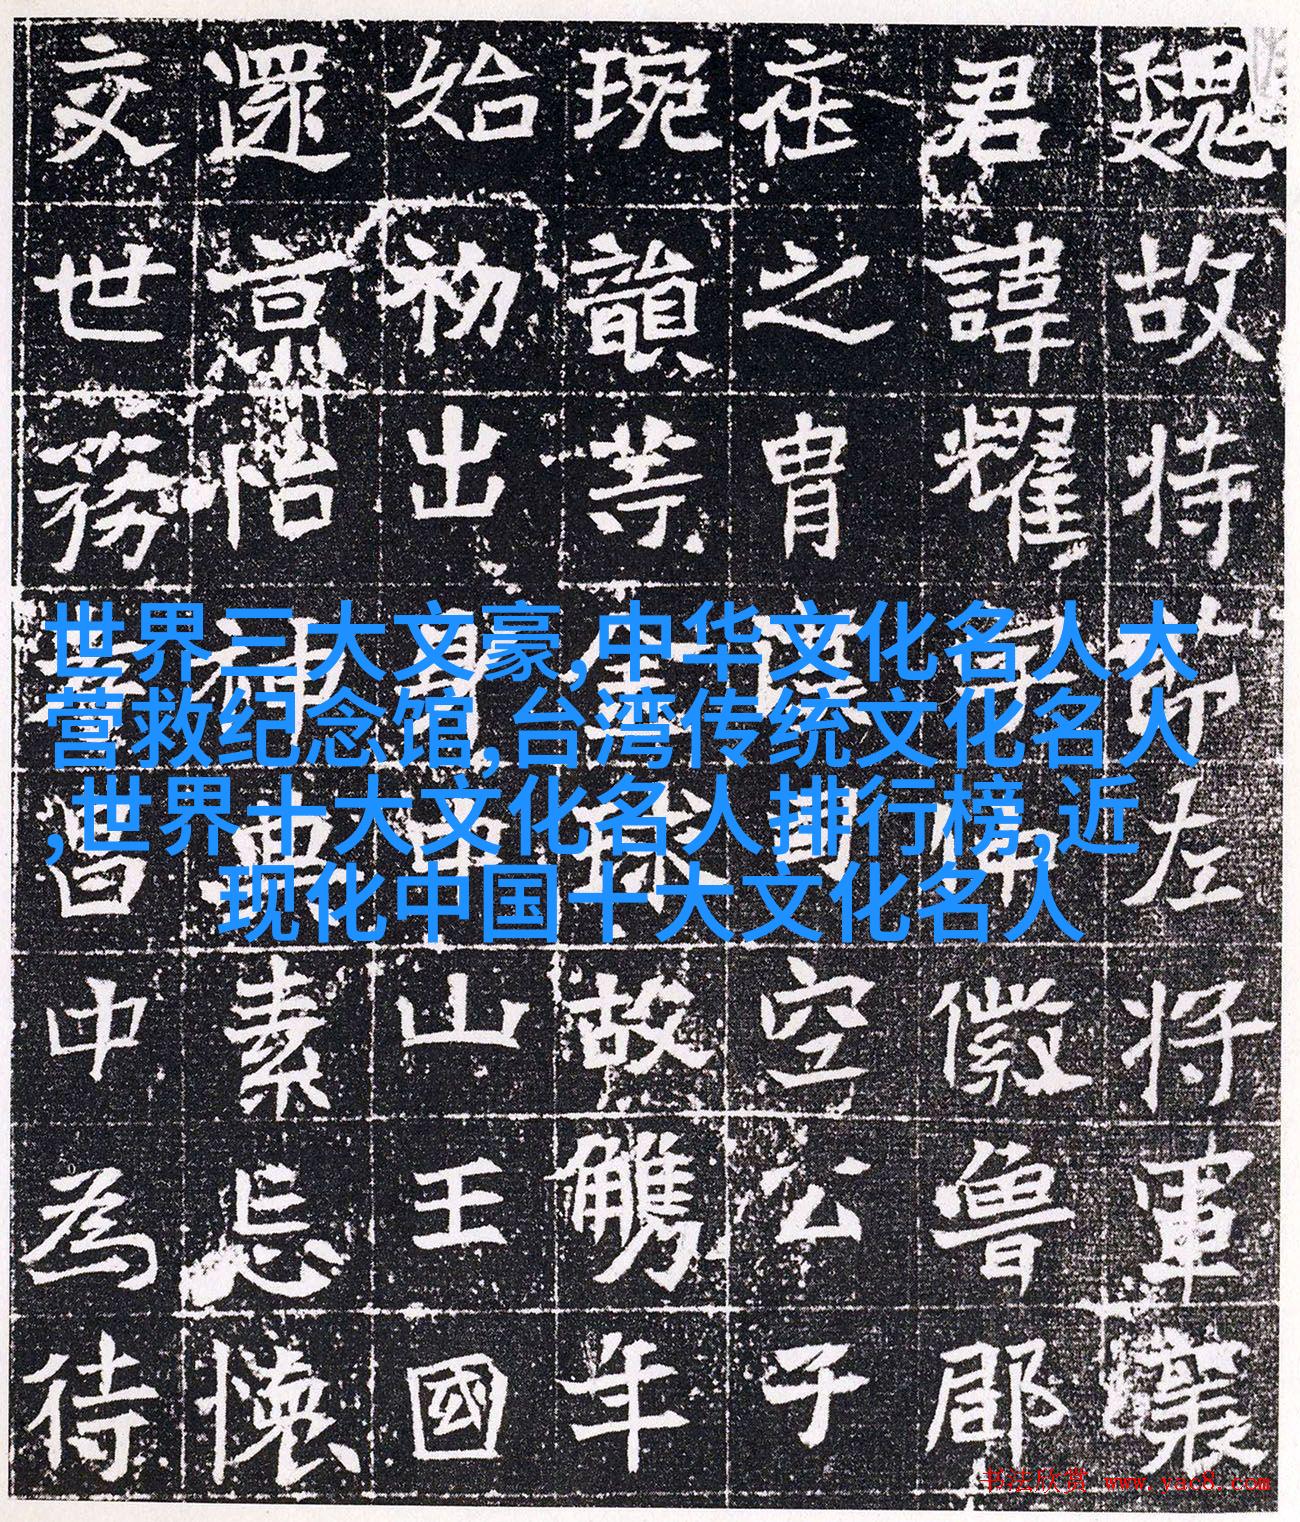 魏故持節左將軍襄
君諱耀字徽魯郡
之胄空公子
琬韻故觿年
始初出山王國
還京怡神典素忘懷
交世務中為待
世界三大文豪,中华文化名人大
营救纪念馆,台湾传统文化名人
,世界十大文化名人排行榜,近
现化中国十大文化名人
书法欣赏 www.yac8.com